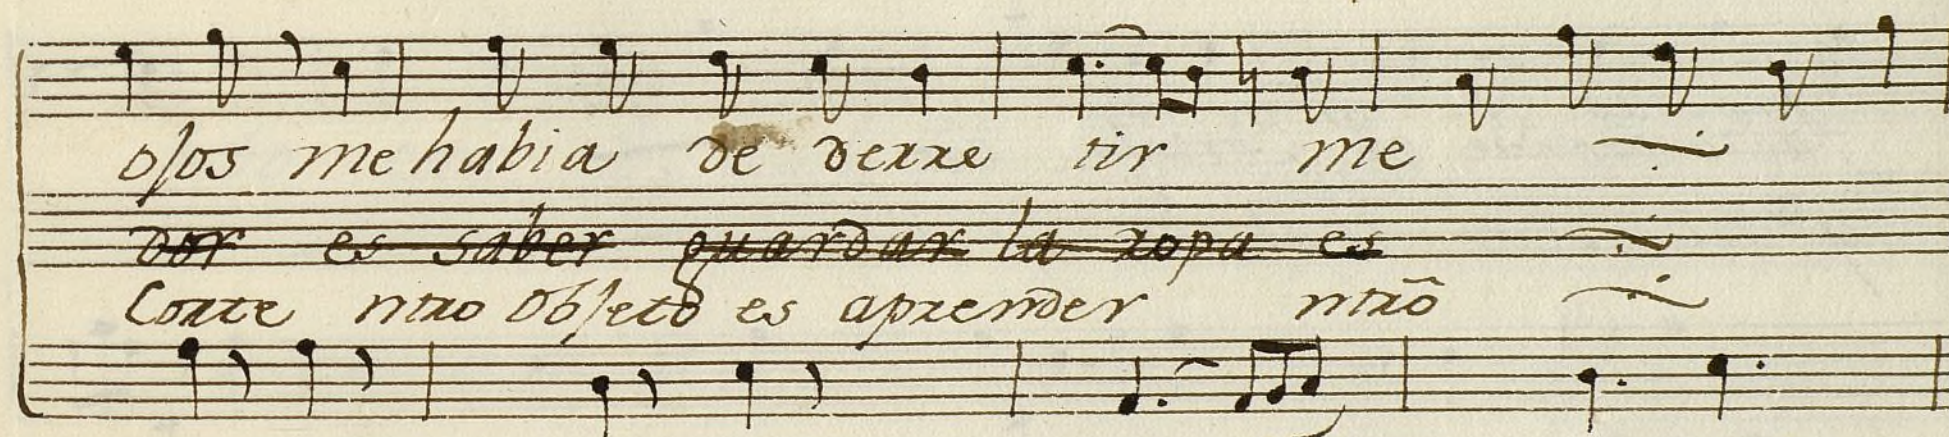 ojos me habia de derre tir me
dor es saber guardar la ropa es
Corte ntro objeto es aprender ntrō